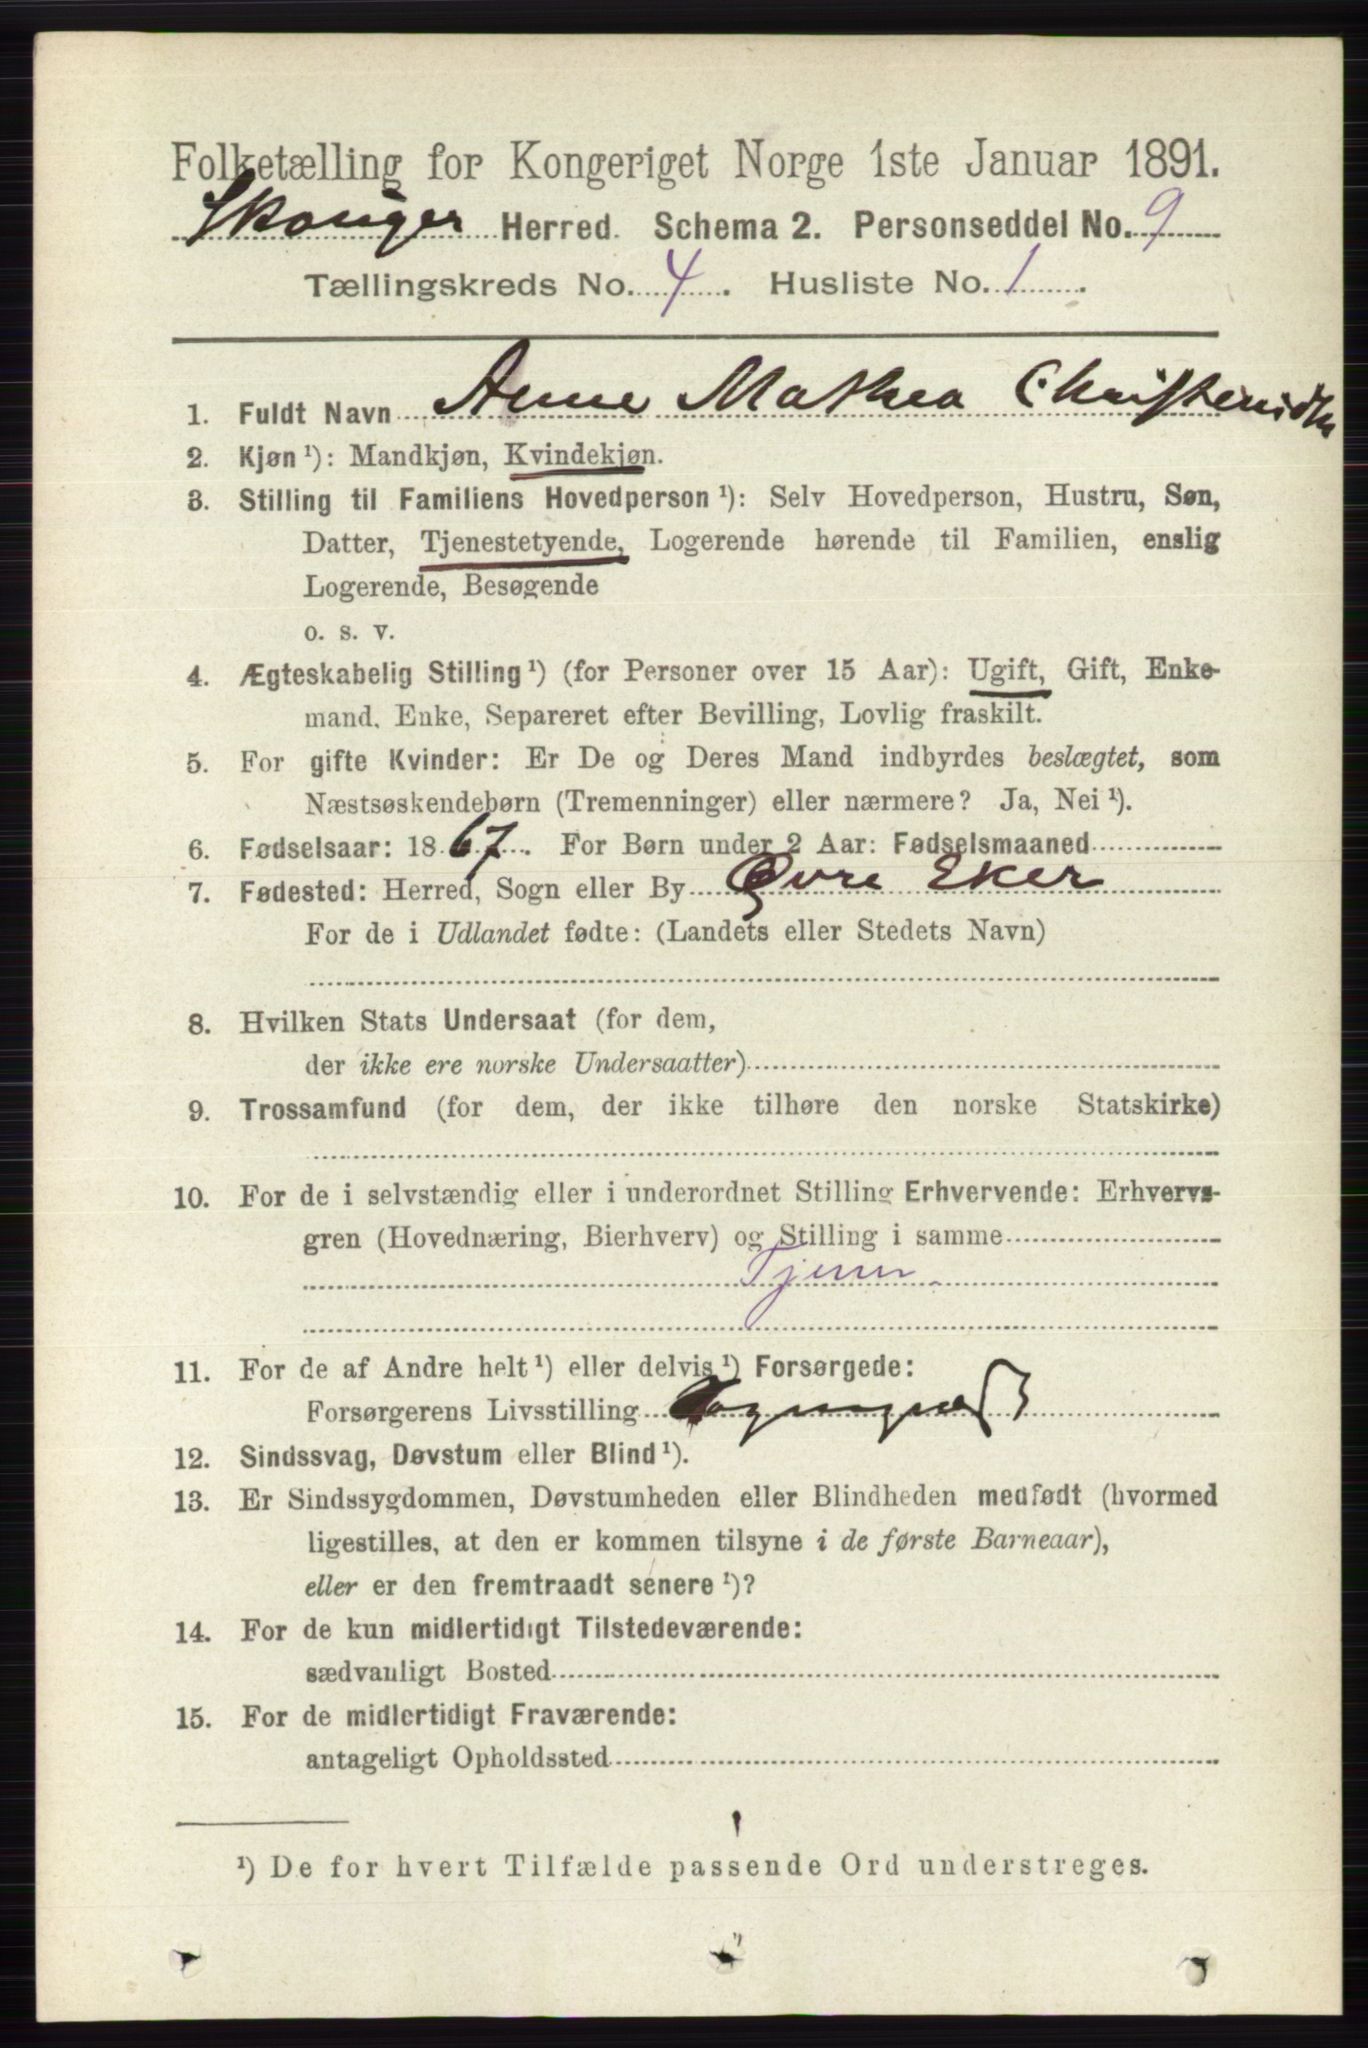 Folketælling for Kongeriget Norge 1ste Januar 1891.
Skouger Herred. Schema 2. Personseddel No. 9
Tællingskreds No. 4. Husliste No. 1.
1. Fuldt Navn Anne Mathea Christensdtr
2. Kjøn ¹): Mandkjøn, Kvindekjøn.
3. Stilling til Familiens Hovedperson ¹): Selv Hovedperson, Hustru, Søn,
Datter, Tjenestetyende, Logerende hørende til Familien, enslig
Logerende, Besøgende
o. s. v.
4. Ægteskabelig Stilling ¹) (for Personer over 15 Aar): Ugift, Gift, Enke-
mand, Enke, Separeret efter Bevilling, Lovlig fraskilt.
5. For gifte Kvinder: Er De og Deres Mand indbyrdes beslægtet, som
Næstsøskendebørn (Tremenninger) eller nærmere? Ja, Nei ¹).
6. Fødselsaar: 1867. For Børn under 2 Aar: Fødselsmaaned
7. Fødested: Herred, Sogn eller By Øvre Eker
For de i Udlandet fødte: (Landets eller Stedets Navn)
8. Hvilken Stats Undersaat (for dem,
der ikke ere norske Undersaatter)
9. Trossamfund (for dem, der ikke tilhøre den norske Statskirke)
10. For de i selvstændig eller i underordnet Stilling Erhvervende: Erhvervs-
gren (Hovednæring, Bierhverv) og Stilling i samme
Tjener
11. For de af Andre helt ¹) eller delvis ¹) Forsørgede:
Forsørgerens Livsstilling
12. Sindssvag, Døvstum eller Blind ¹).
13. Er Sindssygdommen, Døvstumheden eller Blindheden medfødt (hvormed
ligestilles, at den er kommen tilsyne i de første Barneaar),
eller er den fremtraadt senere ¹)?
14. For de kun midlertidigt Tilstedeværende:
sædvanligt Bosted
15. For de midlertidigt Fraværende:
antageligt Opholdssted
¹) De for hvert Tilfælde passende Ord understreges.